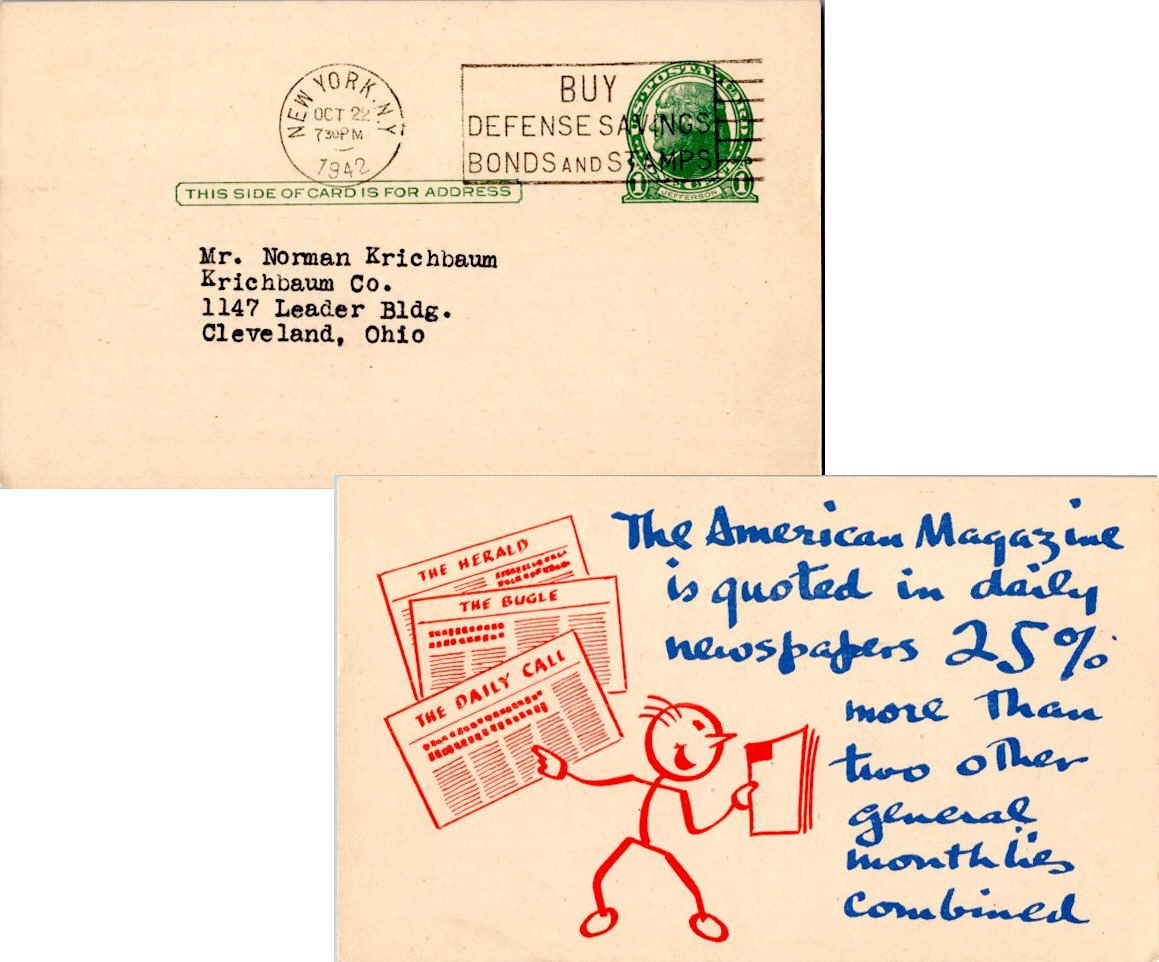 NEW YORK, N.Y.
OCT 22
730PM
1942
BUY
DEFENSE SAVINGS
BONDS AND STAMPS
U.S. POSTAL CARD
1 1
JEFFERSON
THIS SIDE OF CARD IS FOR ADDRESS
Mr. Norman Krichbaum
Krichbaum Co.
1147 Leader Bldg.
Cleveland, Ohio
THE HERALD
THE BUGLE
THE DAILY CALL
The American Magazine
is quoted in daily
newspapers 25%
more than
two other
general
monthlies
combined